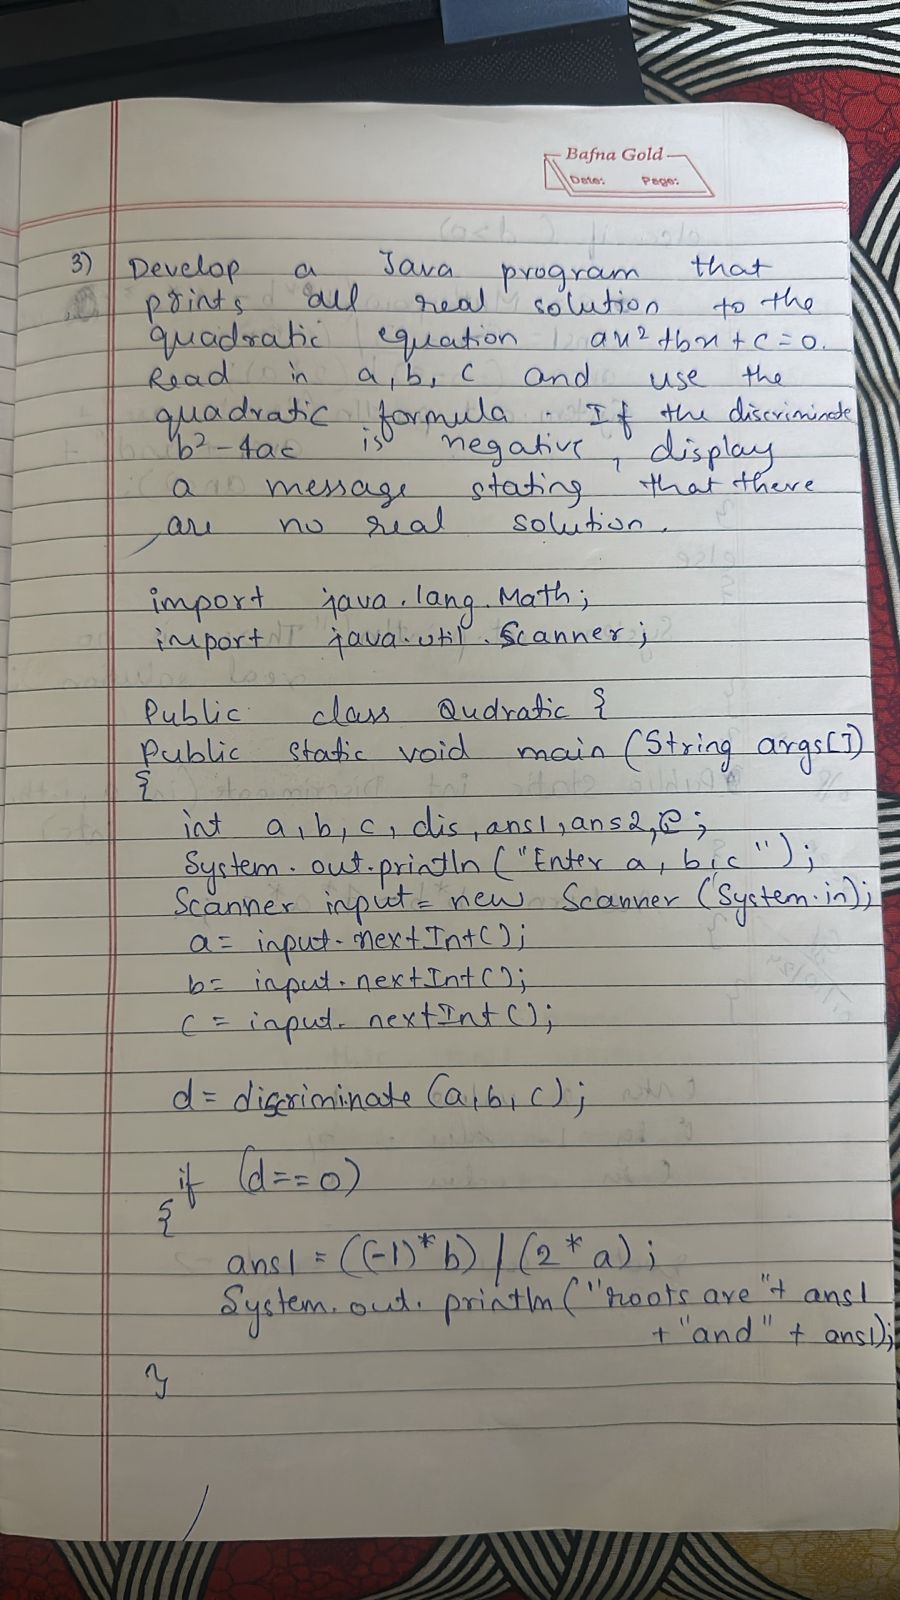 Bafna Gold
Date: Page:
3) Develop a Java program that
prints all real solution to the
quadratic equation ax² + bx + c = 0.
Read in a, b, c and use the
quadratic formula. If the discriminate
b² - 4ac is negative, display
a message stating that there
are no real solution.
import java.lang.Math;
import java.util.Scanner;
Public class Qudratic {
Public static void main (String args[])
{
int a, b, c, dis, ans1, ans2, ;
System.out.println ("Enter a, b, c");
Scanner input = new Scanner (System.in);
a = input.nextInt();
b = input.nextInt();
c = input.nextInt();
d = discriminate (a, b, c);
if (d==0)
{
ans1 = ((-1)*b) / (2*a);
System.out.println ("roots are" + ans1
+ "and" + ans1);
}